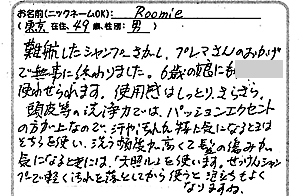 お名前(ニックネームOK): Roomie
(東京 在住、49歳、性別: 男)
難航したシャンプーさがし、プレマさんのおかげ
で無事に終わりました。6歳の娘にも
使わせられます。使用感はしっとり、さらさら。
頭皮等の洗浄力では、パッションエクセレント
の方が上なので、汗や汚れが特に気になるときは
そちらを使い、洗う頻度が高くて髪の傷みが
気になるときには、「太陽ル」を使います。せっけんシャン
プーで軽く汚れを落としてから使うと泡立ちもよく
なりますね。